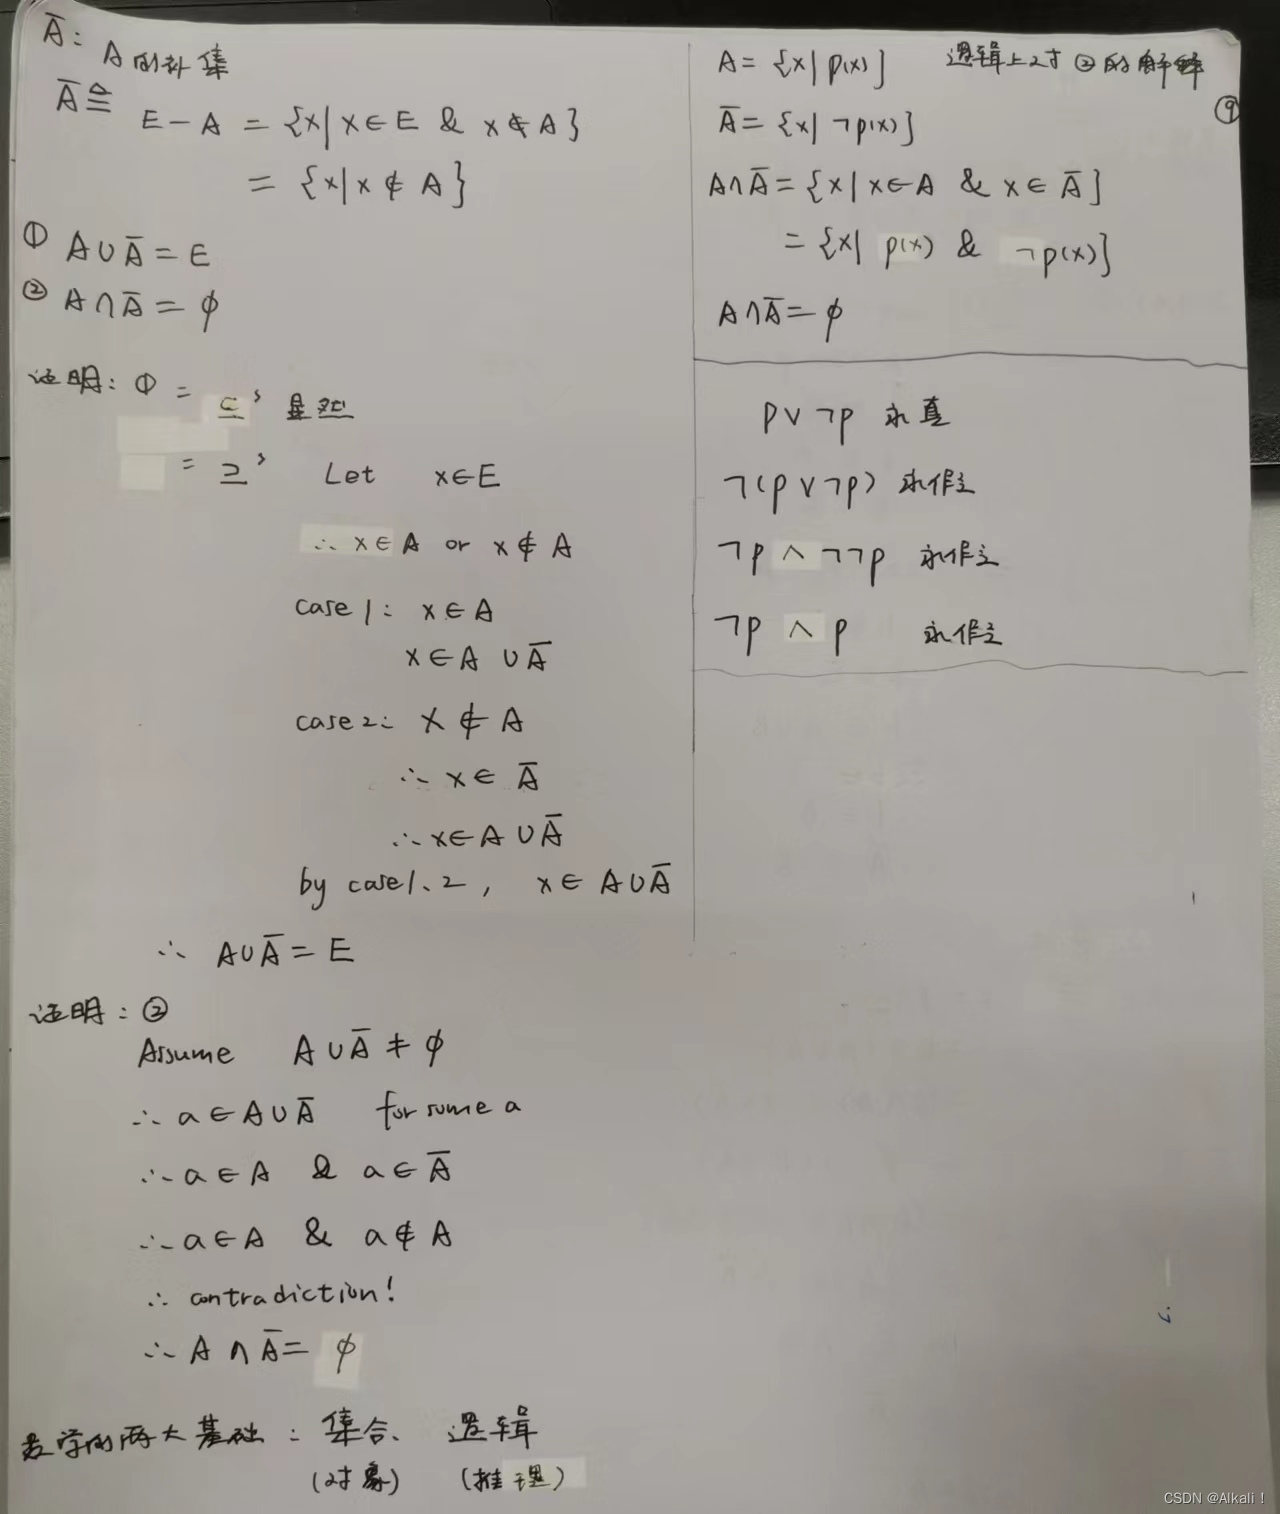 Ā: A的补集
Ā ≙ E - A = {x| x∈E & x∉A}
= {x|x ∉ A}
① A∪Ā = E
② A∩Ā = ϕ
证明: ① "⊆" 显然
"⊇" Let x∈E
∴ x∈A or x∉A
case 1: x∈A
x∈A ∪Ā
case 2: x∉A
∴ x∈Ā
∴ x∈A∪Ā
by case 1、2, x∈A∪Ā
∴ A∪Ā = E
证明: ②
Assume A∪Ā ≠ ϕ
∴ a∈A∪Ā for some a
∴ a∈A & a∈Ā
∴ a∈A & a∉A
∴ contradiction!
∴ A∩Ā = ϕ
数学的两大基础: 集合、逻辑
(对象) (推理)
A = {x| p(x)} 逻辑上对②的解释
⑨
Ā = {x| ¬p(x)}
A∩Ā = {x|x∈A & x∈Ā}
= {x| p(x) & ¬p(x)}
A∩Ā = ϕ
p∨¬p 永真
¬(p∨¬p) 永假
¬p ∧ ¬¬p 永假
¬p ∧ p 永假
CSDN @Alkali！